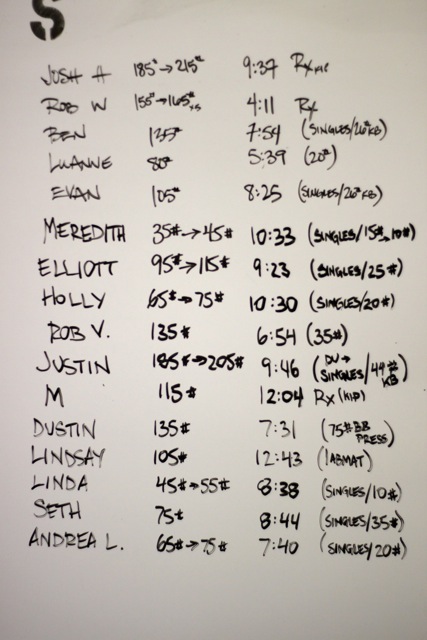 S
JOSH H 185#→215# 9:37 Rx
ROB W 155#→165# x5 4:11 Rx
BEN 135# 7:54 (SINGLES/26# KB)
LUANNE 80# 5:39 (20#)
EVAN 105# 8:25 (SINGLES/26# KB)
MEREDITH 35#→45# 10:33 (SINGLES/15#→10#)
ELLIOTT 95#→115# 9:23 (SINGLES/25#)
HOLLY 65#→75# 10:30 (SINGLES/20#)
ROB V. 135# 6:54 (35#)
JUSTIN 185#→205# 9:46 (DU→ SINGLES/44# KB)
M 115# 12:04 Rx (KIP)
DUSTIN 135# 7:31 (75# BB PRESS)
LINDSAY 105# 12:43 (1ABMAT)
LINDA 45#→55# 8:38 (SINGLES/10#)
SETH 75# 8:44 (SINGLES/35#)
ANDREA L. 65#→75# 7:40 (SINGLES/20#)